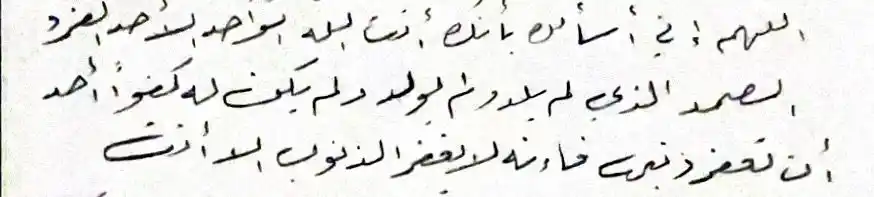 اللهم إني أسألك بأنك أنت الله الواحد الأحد الفرد
الصمد الذي لم يلد ولم يولد ولم يكن له كفواً أحد
أن تغفر ذنبي فإنه لا يغفر الذنوب إلا أنت